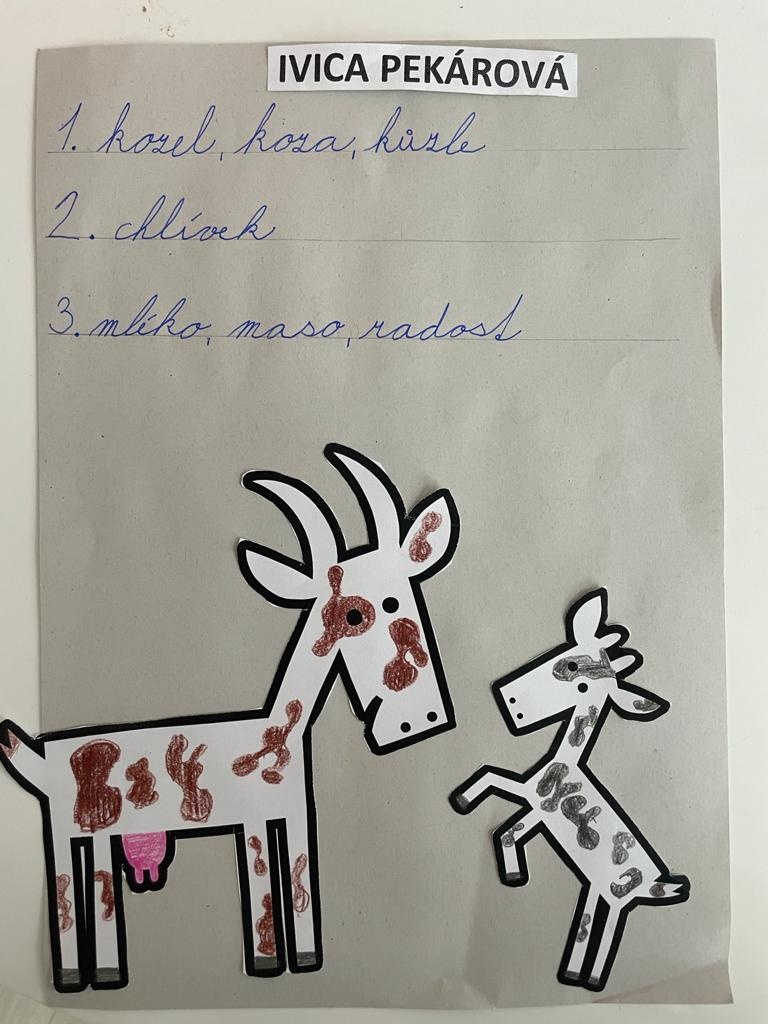 IVICA PEKÁROVÁ
1. kozel, koza, kůzle
2. chlívek
3. mléko, maso, radost